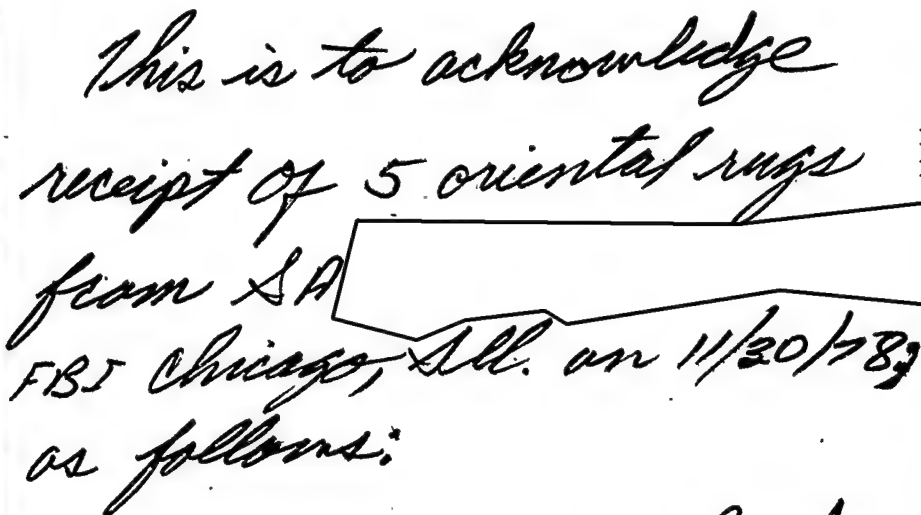 This is to acknowledge
receipt of 5 oriental rugs
from SA
FBI Chicago, Ill. on 11/30/78,
as follows: